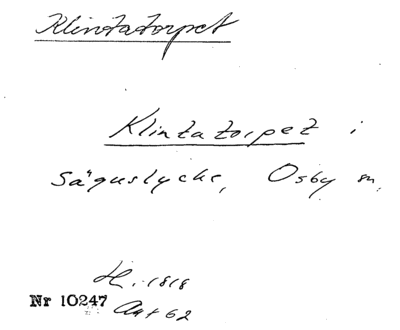 Klintatorpet
Klintatorpet i
Säguslycke, Osby sn.
H. 1818
Nr 10247
Art 62